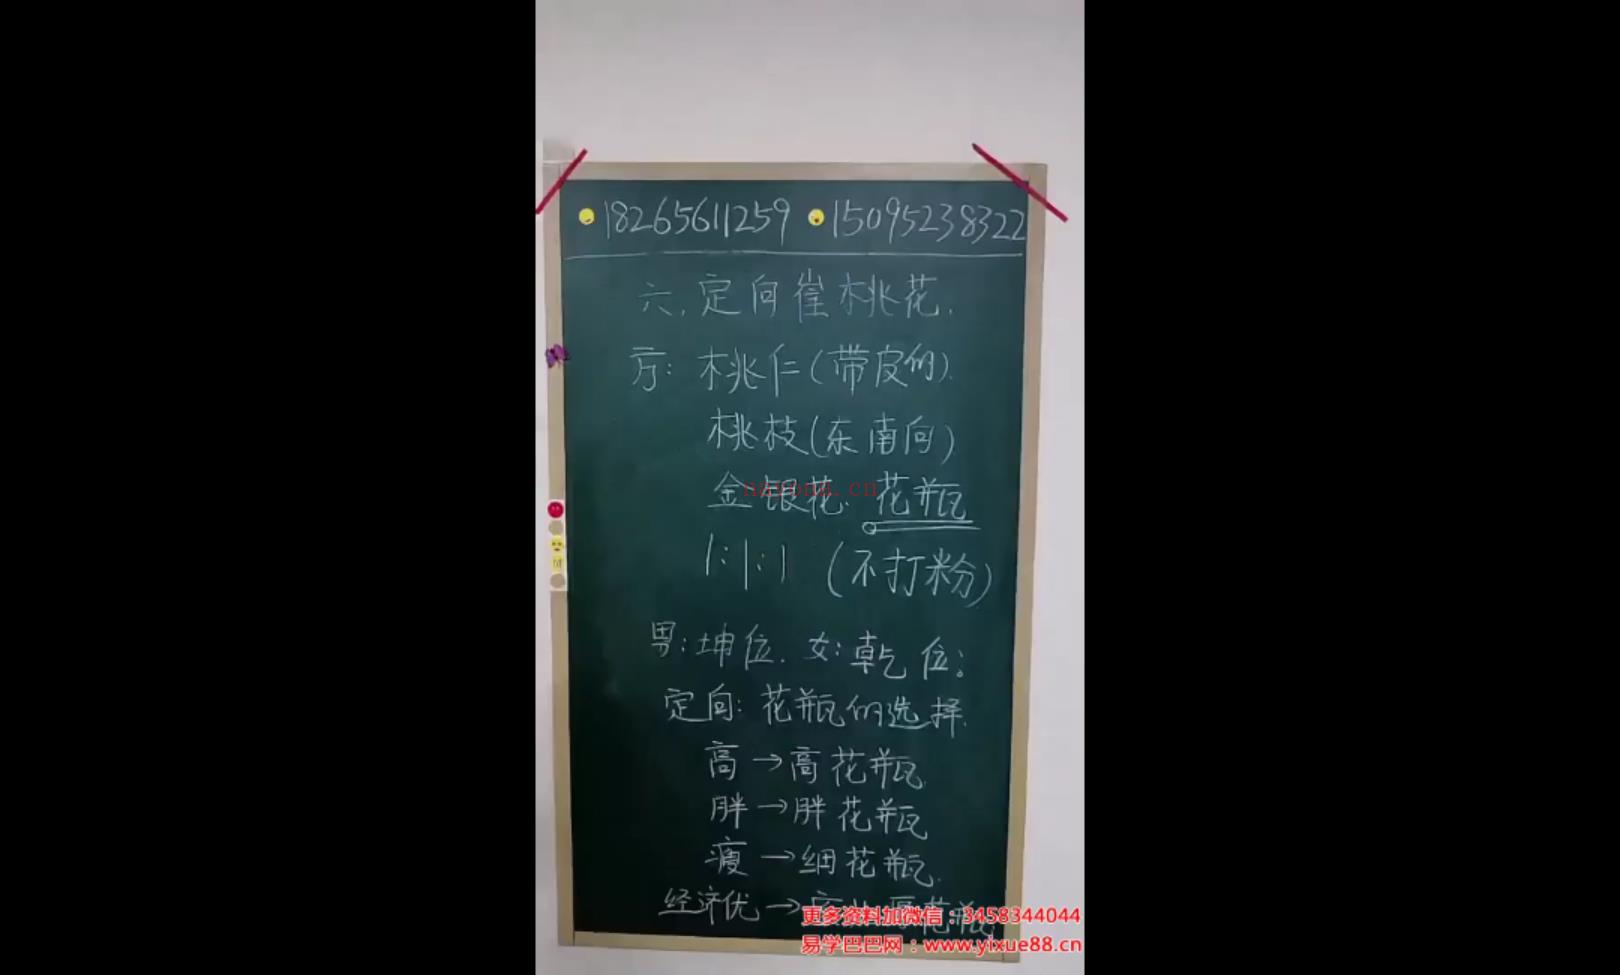 18265611259 15095238322
六.定向崔桃花.
方:桃仁(带皮的).
桃枝(东南向)
金银花.花瓶
nayona.cn
1:1:1 (不打粉)
男:坤位.女:乾位:
定向:花瓶的选择.
高→高花瓶.
胖→胖花瓶
瘦→细花瓶.
经济优→花瓶
更多资料加微信:3458344044
易学巴巴网:www.yixue88.cn